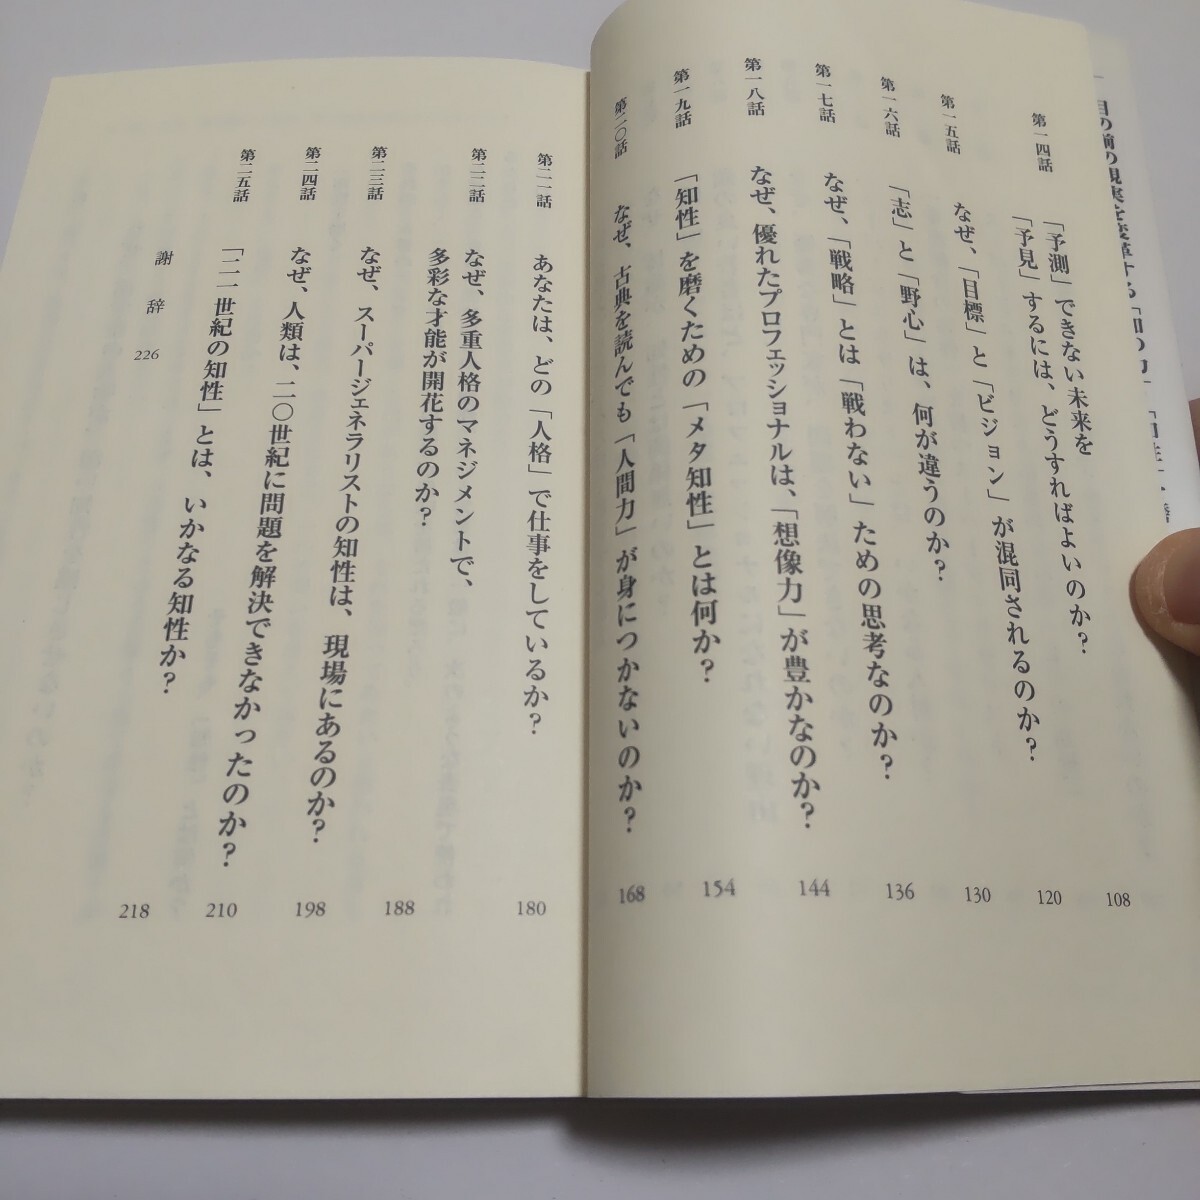 目の前の現実を変革する「知の力」
第一四話
「予測」できない未来を
「予見」するには、どうすればよいのか?
108
第一五話
なぜ、「目標」と「ビジョン」が混同されるのか?
120
第一六話
「志」と「野心」は、何が違うのか?
130
第一七話
なぜ、「戦略」とは「戦わない」ための思考なのか?
136
第一八話
なぜ、優れたプロフェッショナルは、「想像力」が豊かなのか?
144
第一九話
「知性」を磨くための「メタ知性」とは何か?
154
第二〇話
なぜ、古典を読んでも「人間力」が身につかないのか?
168
第二一話
あなたは、どの「人格」で仕事をしているか?
180
第二二話
なぜ、多重人格のマネジメントで、
多彩な才能が開花するのか?
188
第二三話
なぜ、スーパージェネラリストの知性は、現場にあるのか?
198
第二四話
なぜ、人類は、二〇世紀に問題を解決できなかったのか?
210
第二五話
「二一世紀の知性」とは、いかなる知性か?
218
謝辞 226